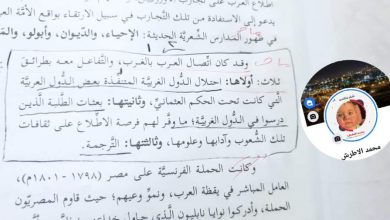 اطلاع العرب على
يدعو إلى الاستفادة من تلك التجارب في سبيل الارتقاء بواقع الأمة
في ظهور المدارس الشعرية الحديثة: الإحياء، والديوان، وأبولو، والمهجر
وقد كان اتصال العرب بالغرب، والتفاعل معه بطرائق
ثلاث: أولاها: احتلال الدول الغربية المتنفذة بعض الدول العربية
التي كانت تحت الحكم العثماني، وثانيتها: بعثات الطلبة الذين
درسوا في الدول الغربية؛ ما وفّر لهم فرصة الاطلاع على ثقافات
تلك الشعوب وآدابها وعلومها، وثالثتها: الترجمة.
وكانت الحملة الفرنسية على مصر (١٧٩٨-١٨٠١م)،
العامل المباشر في يقظة العرب، ونمو وعيهم؛ حيث قاوم المصريون
الحملة، وأدركوا نوايا نابليون الذي حاول
محمد الاطرش